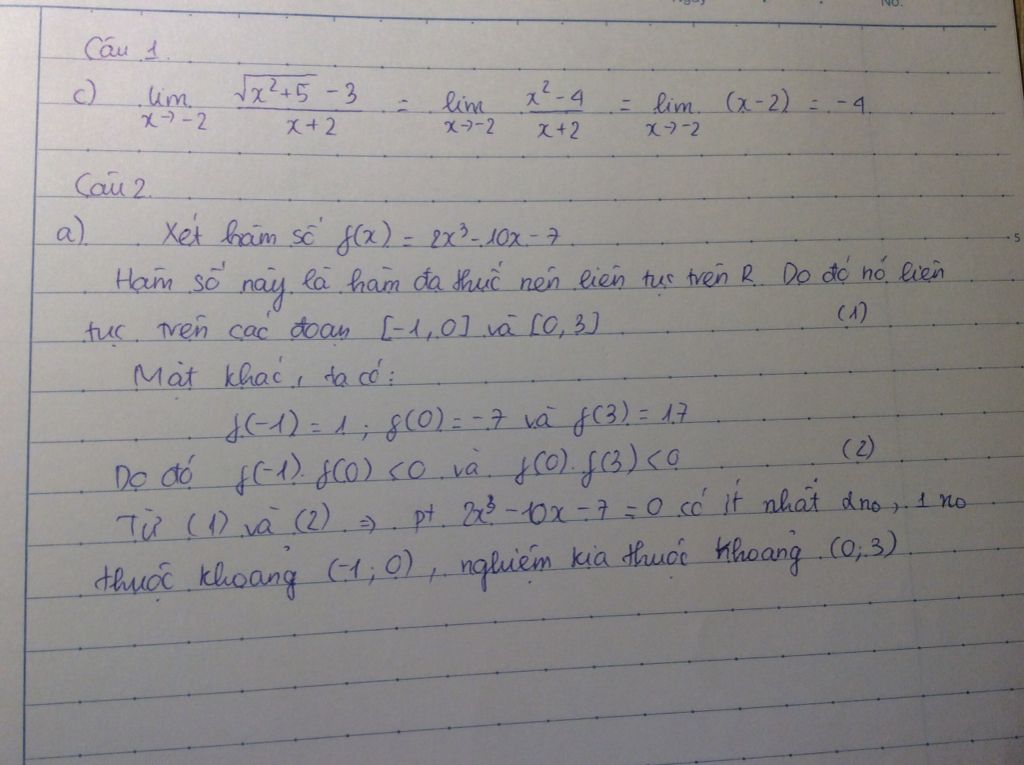 Ngày No.
Câu 1.
c) lim x→-2 (√(x²+5) - 3)/(x+2) = lim x→-2 (x²-4)/(x+2) = lim x→-2 (x-2) = -4
Câu 2.
a). Xét hàm số f(x) = 2x³-10x-7
Hàm số này là hàm đa thức nên liên tục trên R. Do đó nó liên
tục trên các đoạn [-1,0] và [0,3] (1)
Mặt khác, ta có:
f(-1) = 1 ; f(0) = -7 và f(3) = 17
Do đó f(-1). f(0) <0 và f(0). f(3) <0 (2)
Từ (1) và (2) ⇒ pt 2x³-10x-7=0 có ít nhất 2 no, 1 no
thuộc khoảng (-1; 0), nghiệm kia thuộc khoảng (0; 3)
5